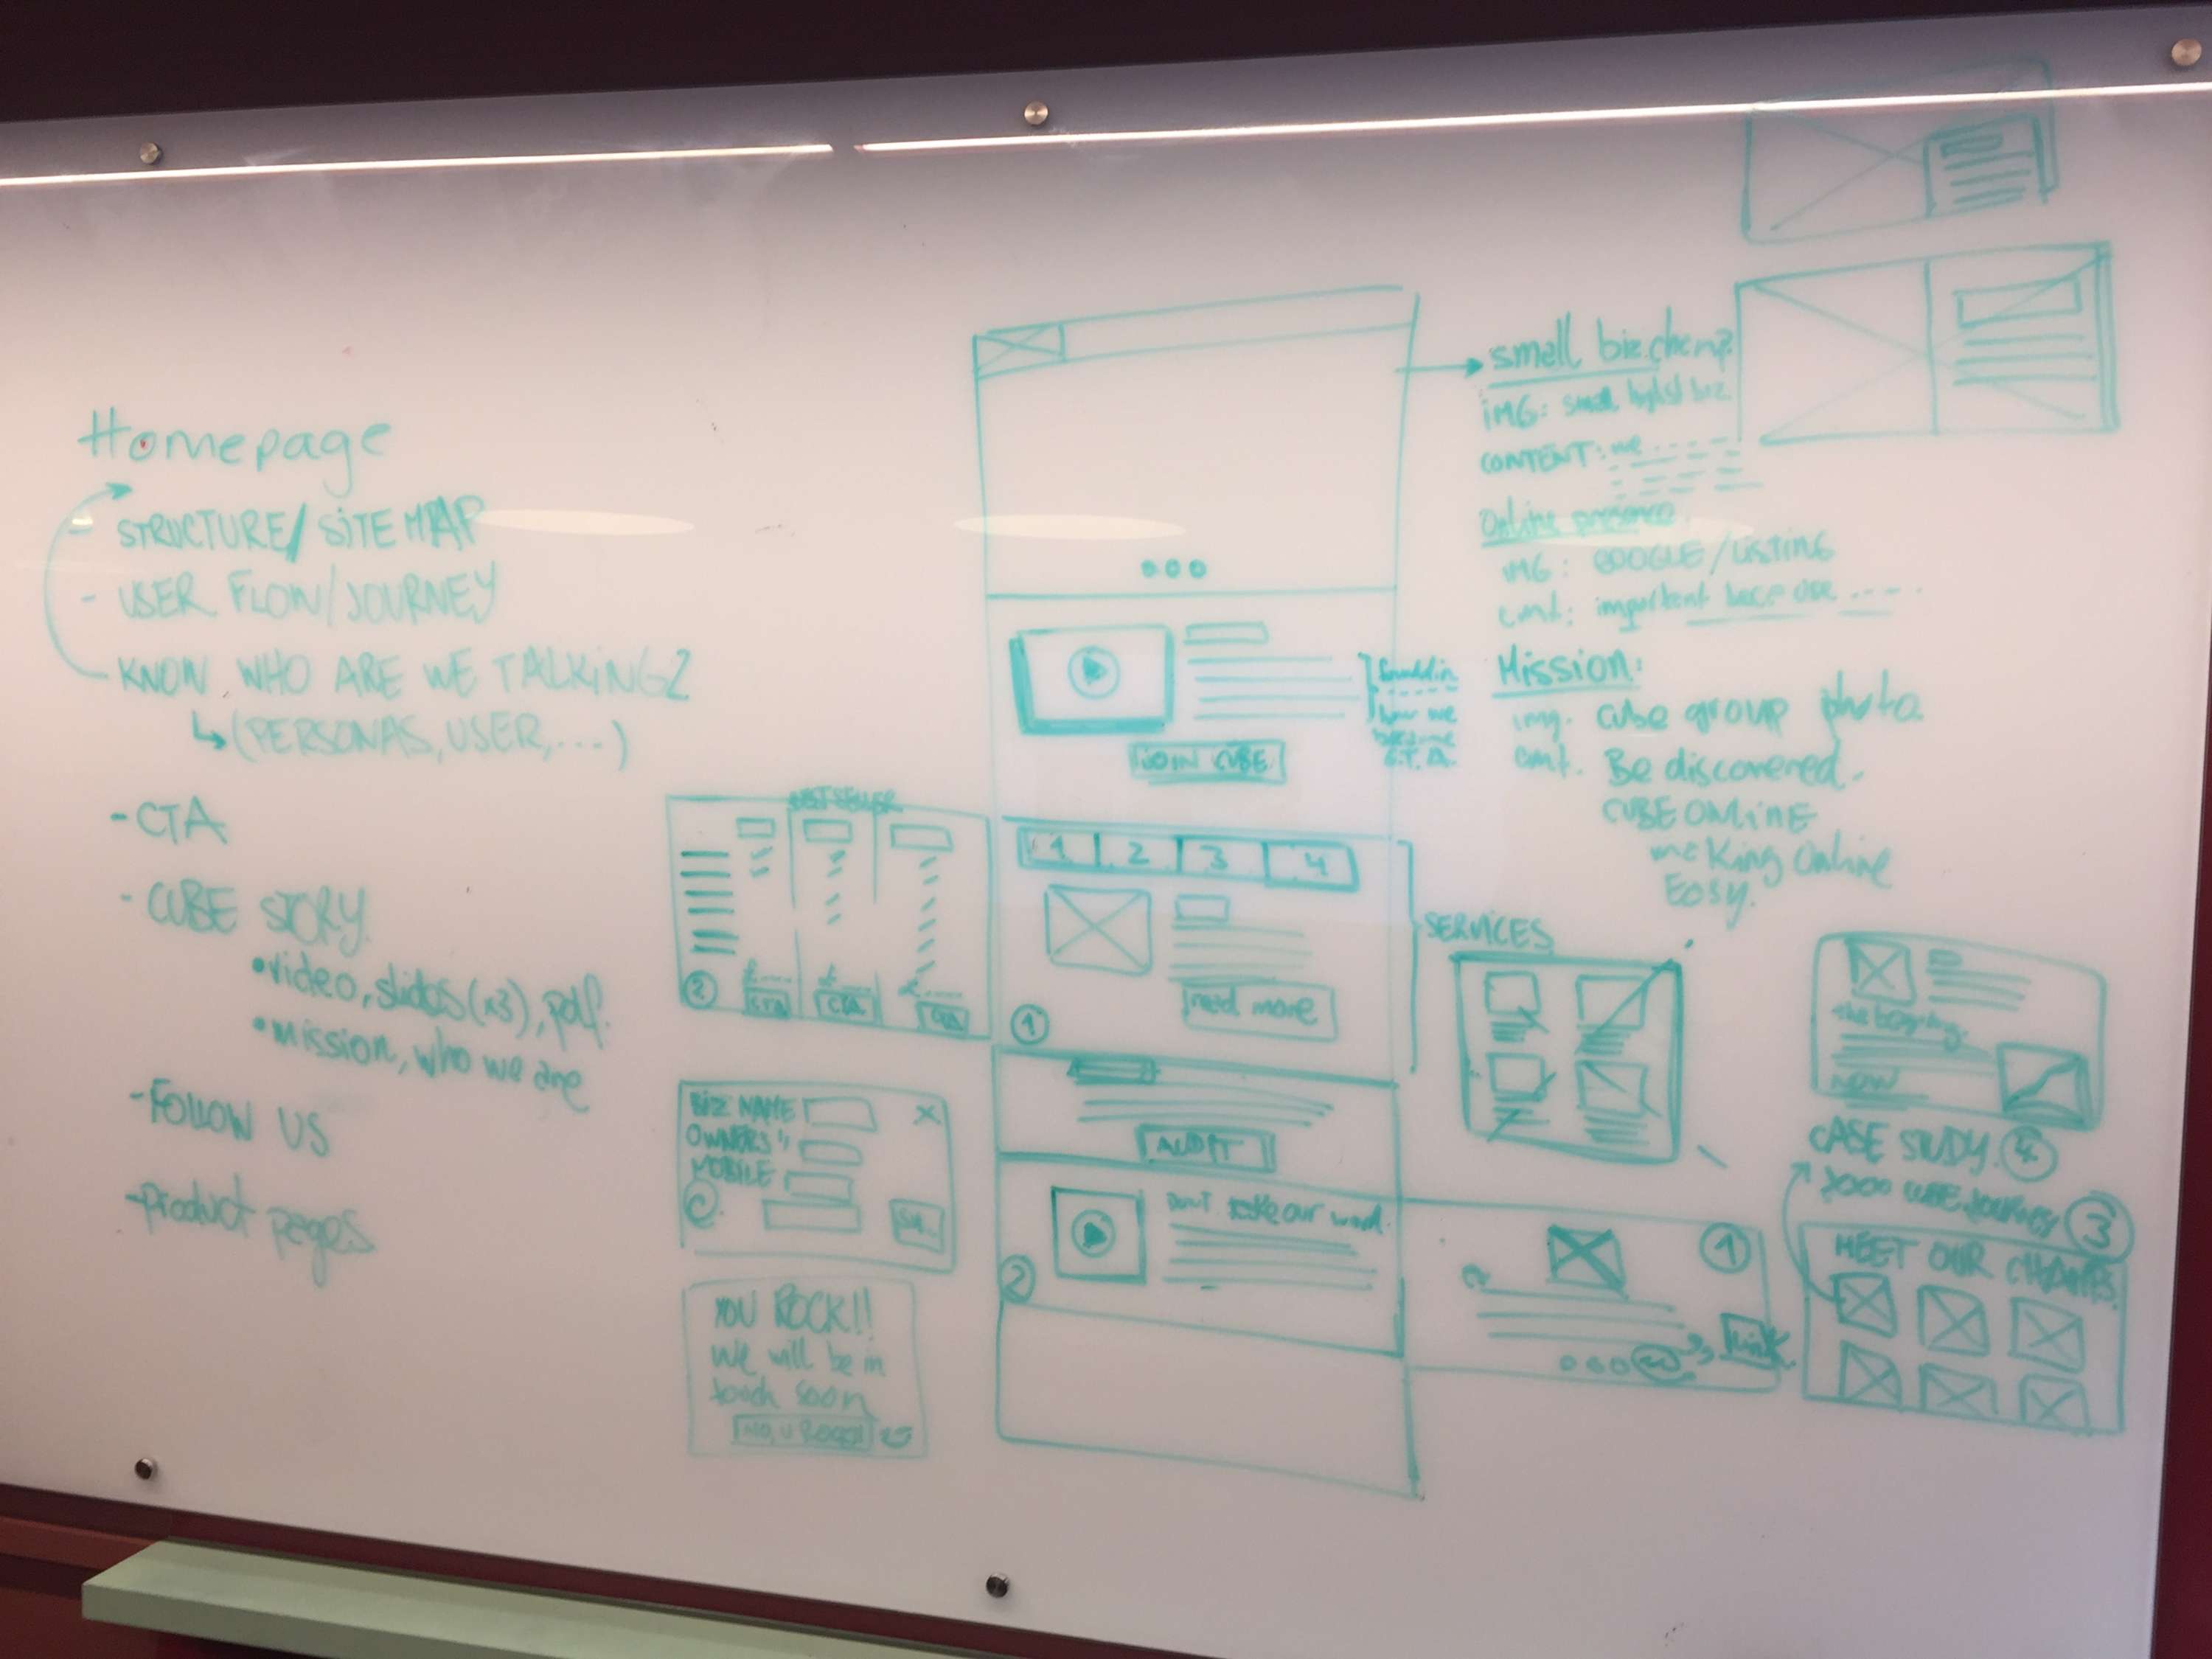 Homepage
- STRUCTURE/SITEMAP
- USER FLOW/JOURNEY
- KNOW WHO ARE WE TALKING2
↳(PERSONAS, USER, ...)
- CTA
- CUBE STORY.
• video, slides(x3), pdf.
• mission, who we are
- FOLLOW US
- Product pages
BEST SELLER
£
£
£
2
CTA
CTA
CTA
BIZ NAME
X
OWNERS "
MOBILE
YOU ROCK!!
We will be in
touch soon
JOIN CUBE
how we
1
2
3
4
read more
1
SERVICES
AUDIT
Don't take our word.
2
small biz champ.
IMG: small
CONTENT: we
Online presence.
IMG: GOOGLE/LISTING
cont: important
Mission:
img. Cube group photo
cont. Be discovered.
CUBE ONLINE
making Online
Easy.
1
Link
NOW
CASE STUDY. 4
3
MEET OUR CHAMPS.